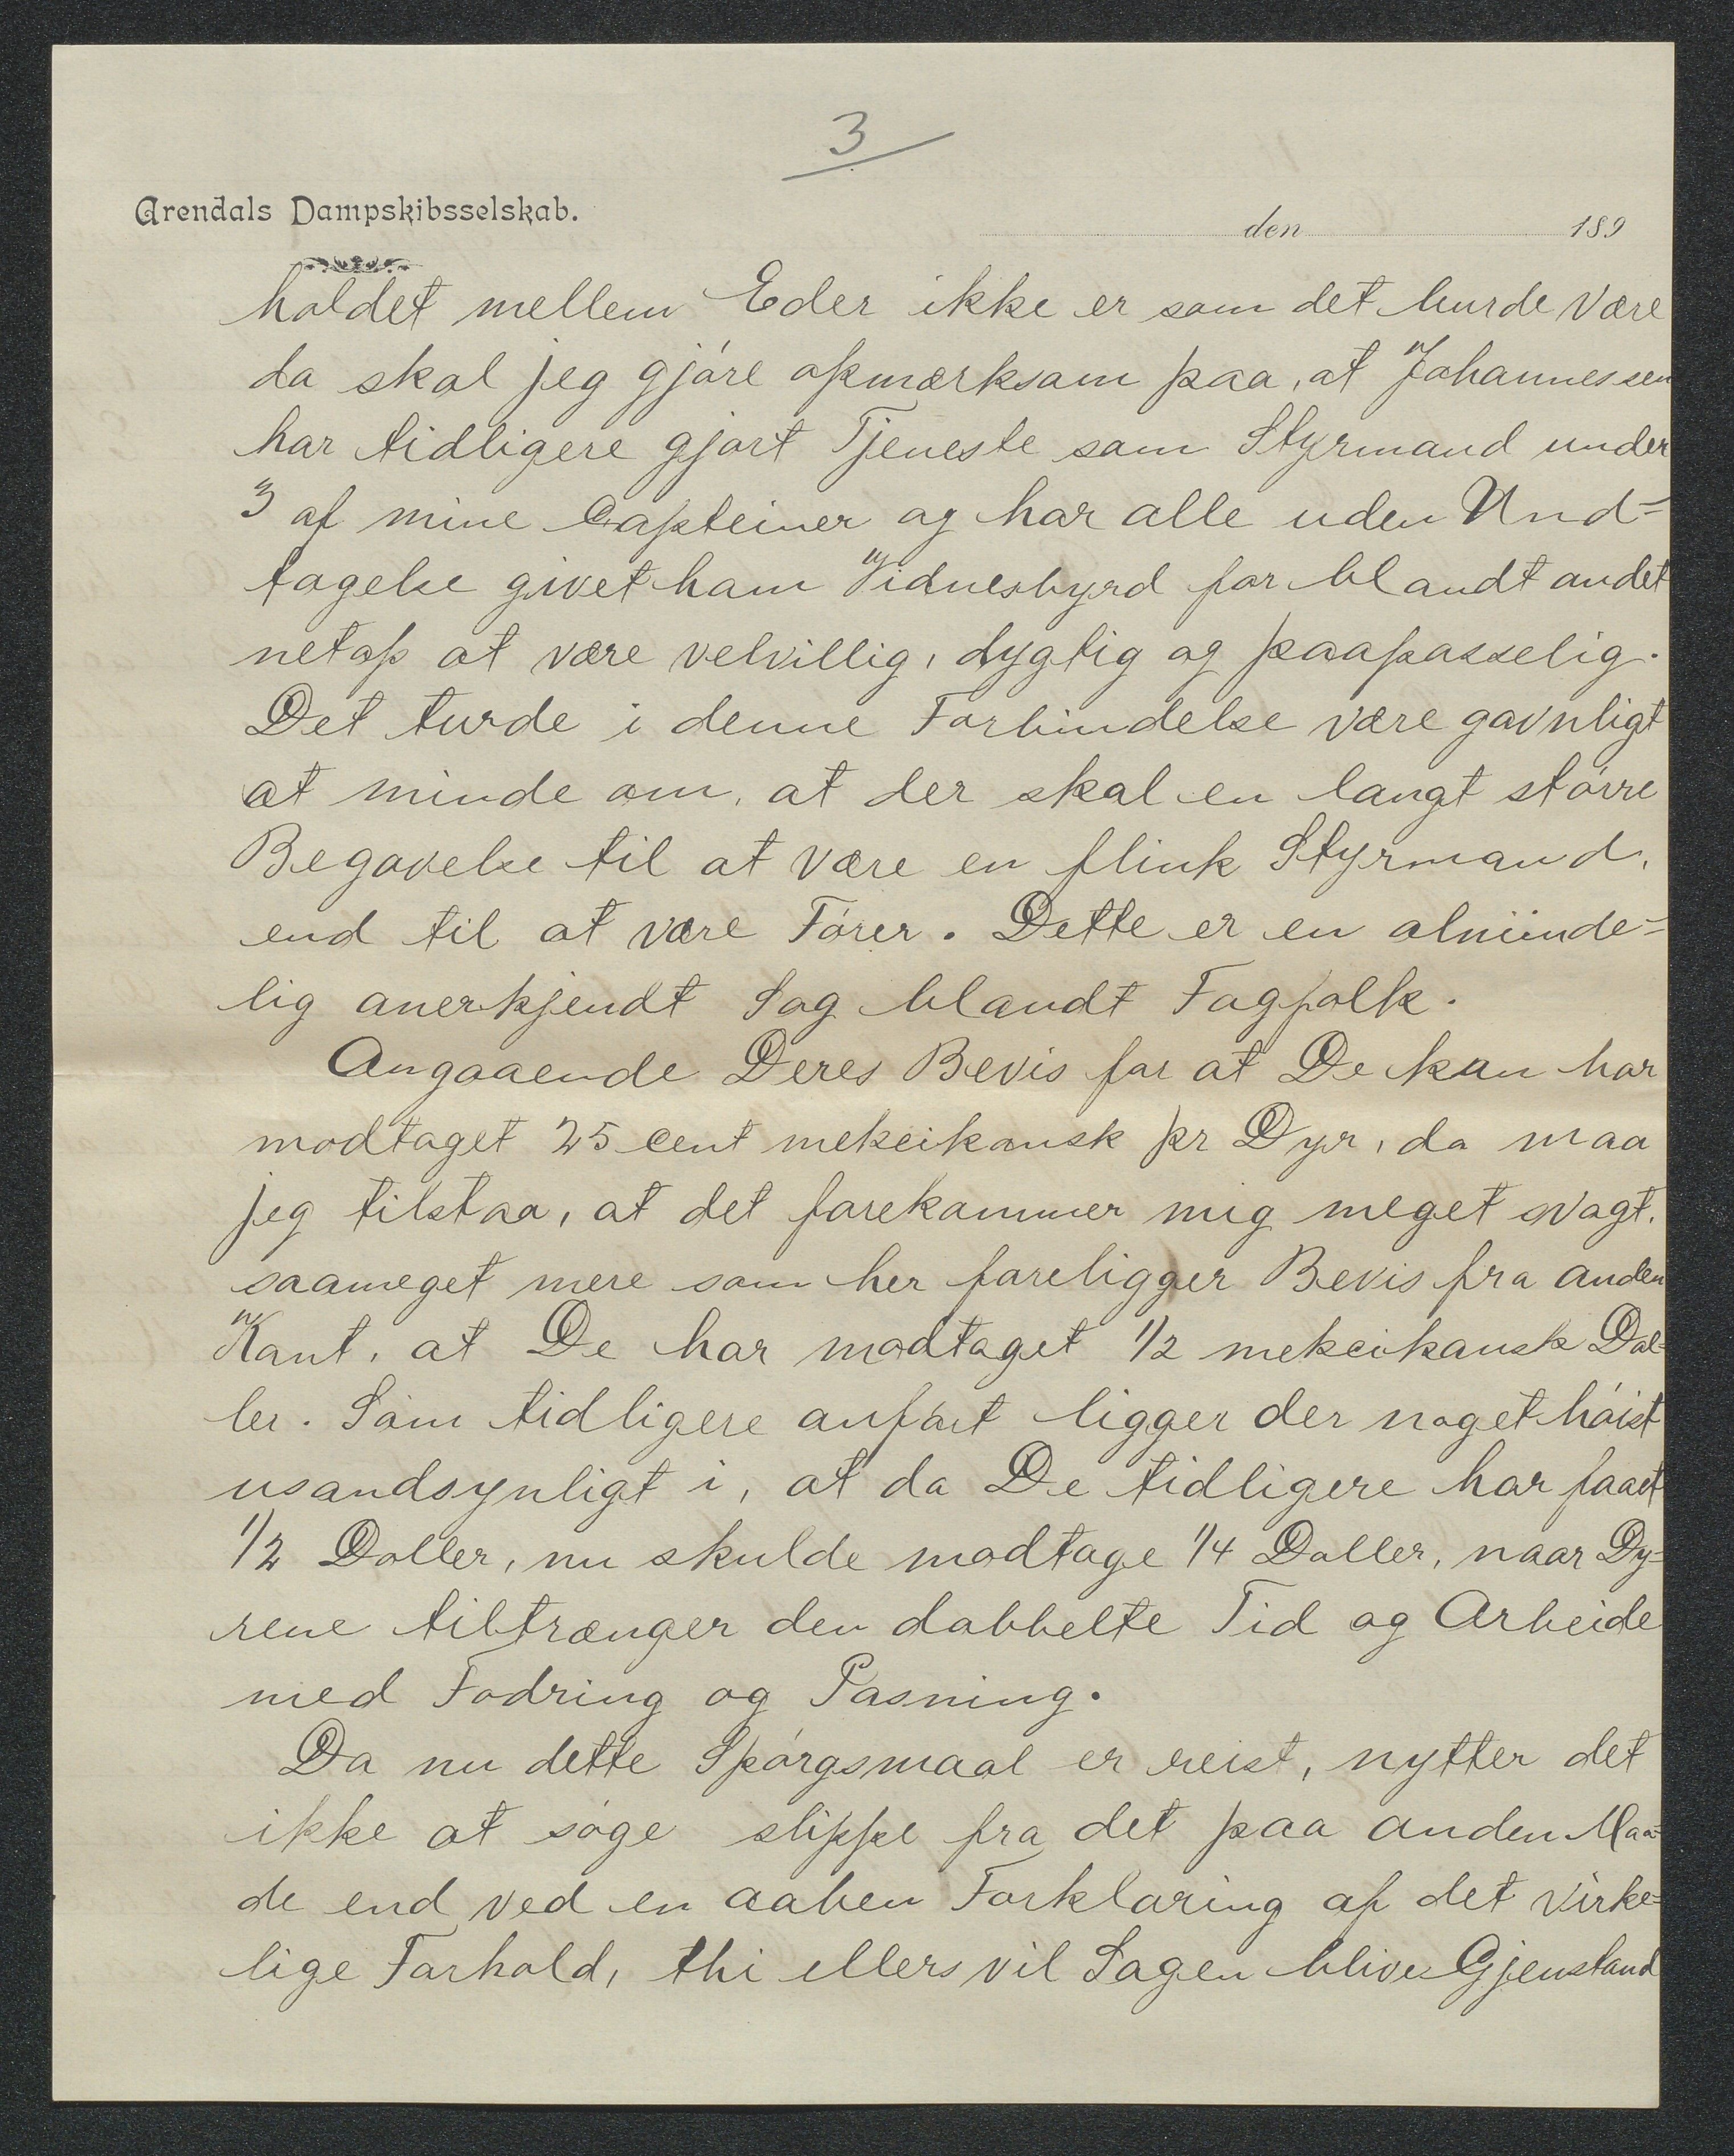 3
Arendals Dampskibsselskab.
den 189
holdet mellem Eder ikke er som det burde være
da skal jeg gjóre opmærksom paa, at Johannessen
har tidligere gjort Tjeneste som Styrmand under
3 af mine Capteiner og har alle uden Und=
tagelse givet ham Vidnesbyrd for blandt andet
netop at være velvillig, dygtig og paapasselig.
Det turde i denne Forbindelse være gavnligt
at minde om, at der skal en langt stórre
Begavelse til at være en flink Styrmand,
end til at være Fórer. Dette er en alminde=
lig anerkjendt Sag blandt Fagfolk.
Angaaende Deres Bevis for at De kun har
modtaget 25 cent mekcikansk pr Dyr, da maa
jeg tilstaa, at det forekommer mig meget svagt,
saameget mere som her foreligger Bevis fra anden
Kant, at De har modtaget 1/2 mekcikansk Dol=
ler. Som tidligere anfórt ligger der noget hóist
usandsynligt i, at da De tidligere har faaet
1/2 Doller, nu skulde modtage 1/4 Doller, naar Dy=
rene tiltrænger den dobbelte Tid og Arbeide
med Fodring og Pasning.
Da nu dette Spórgsmaal er reist, nytter det
ikke at sóge slippe fra det paa anden Maa=
de end ved en aaben Forklaring af det virke=
lige Forhold, thi ellers vil Sagen blive Gjenstand